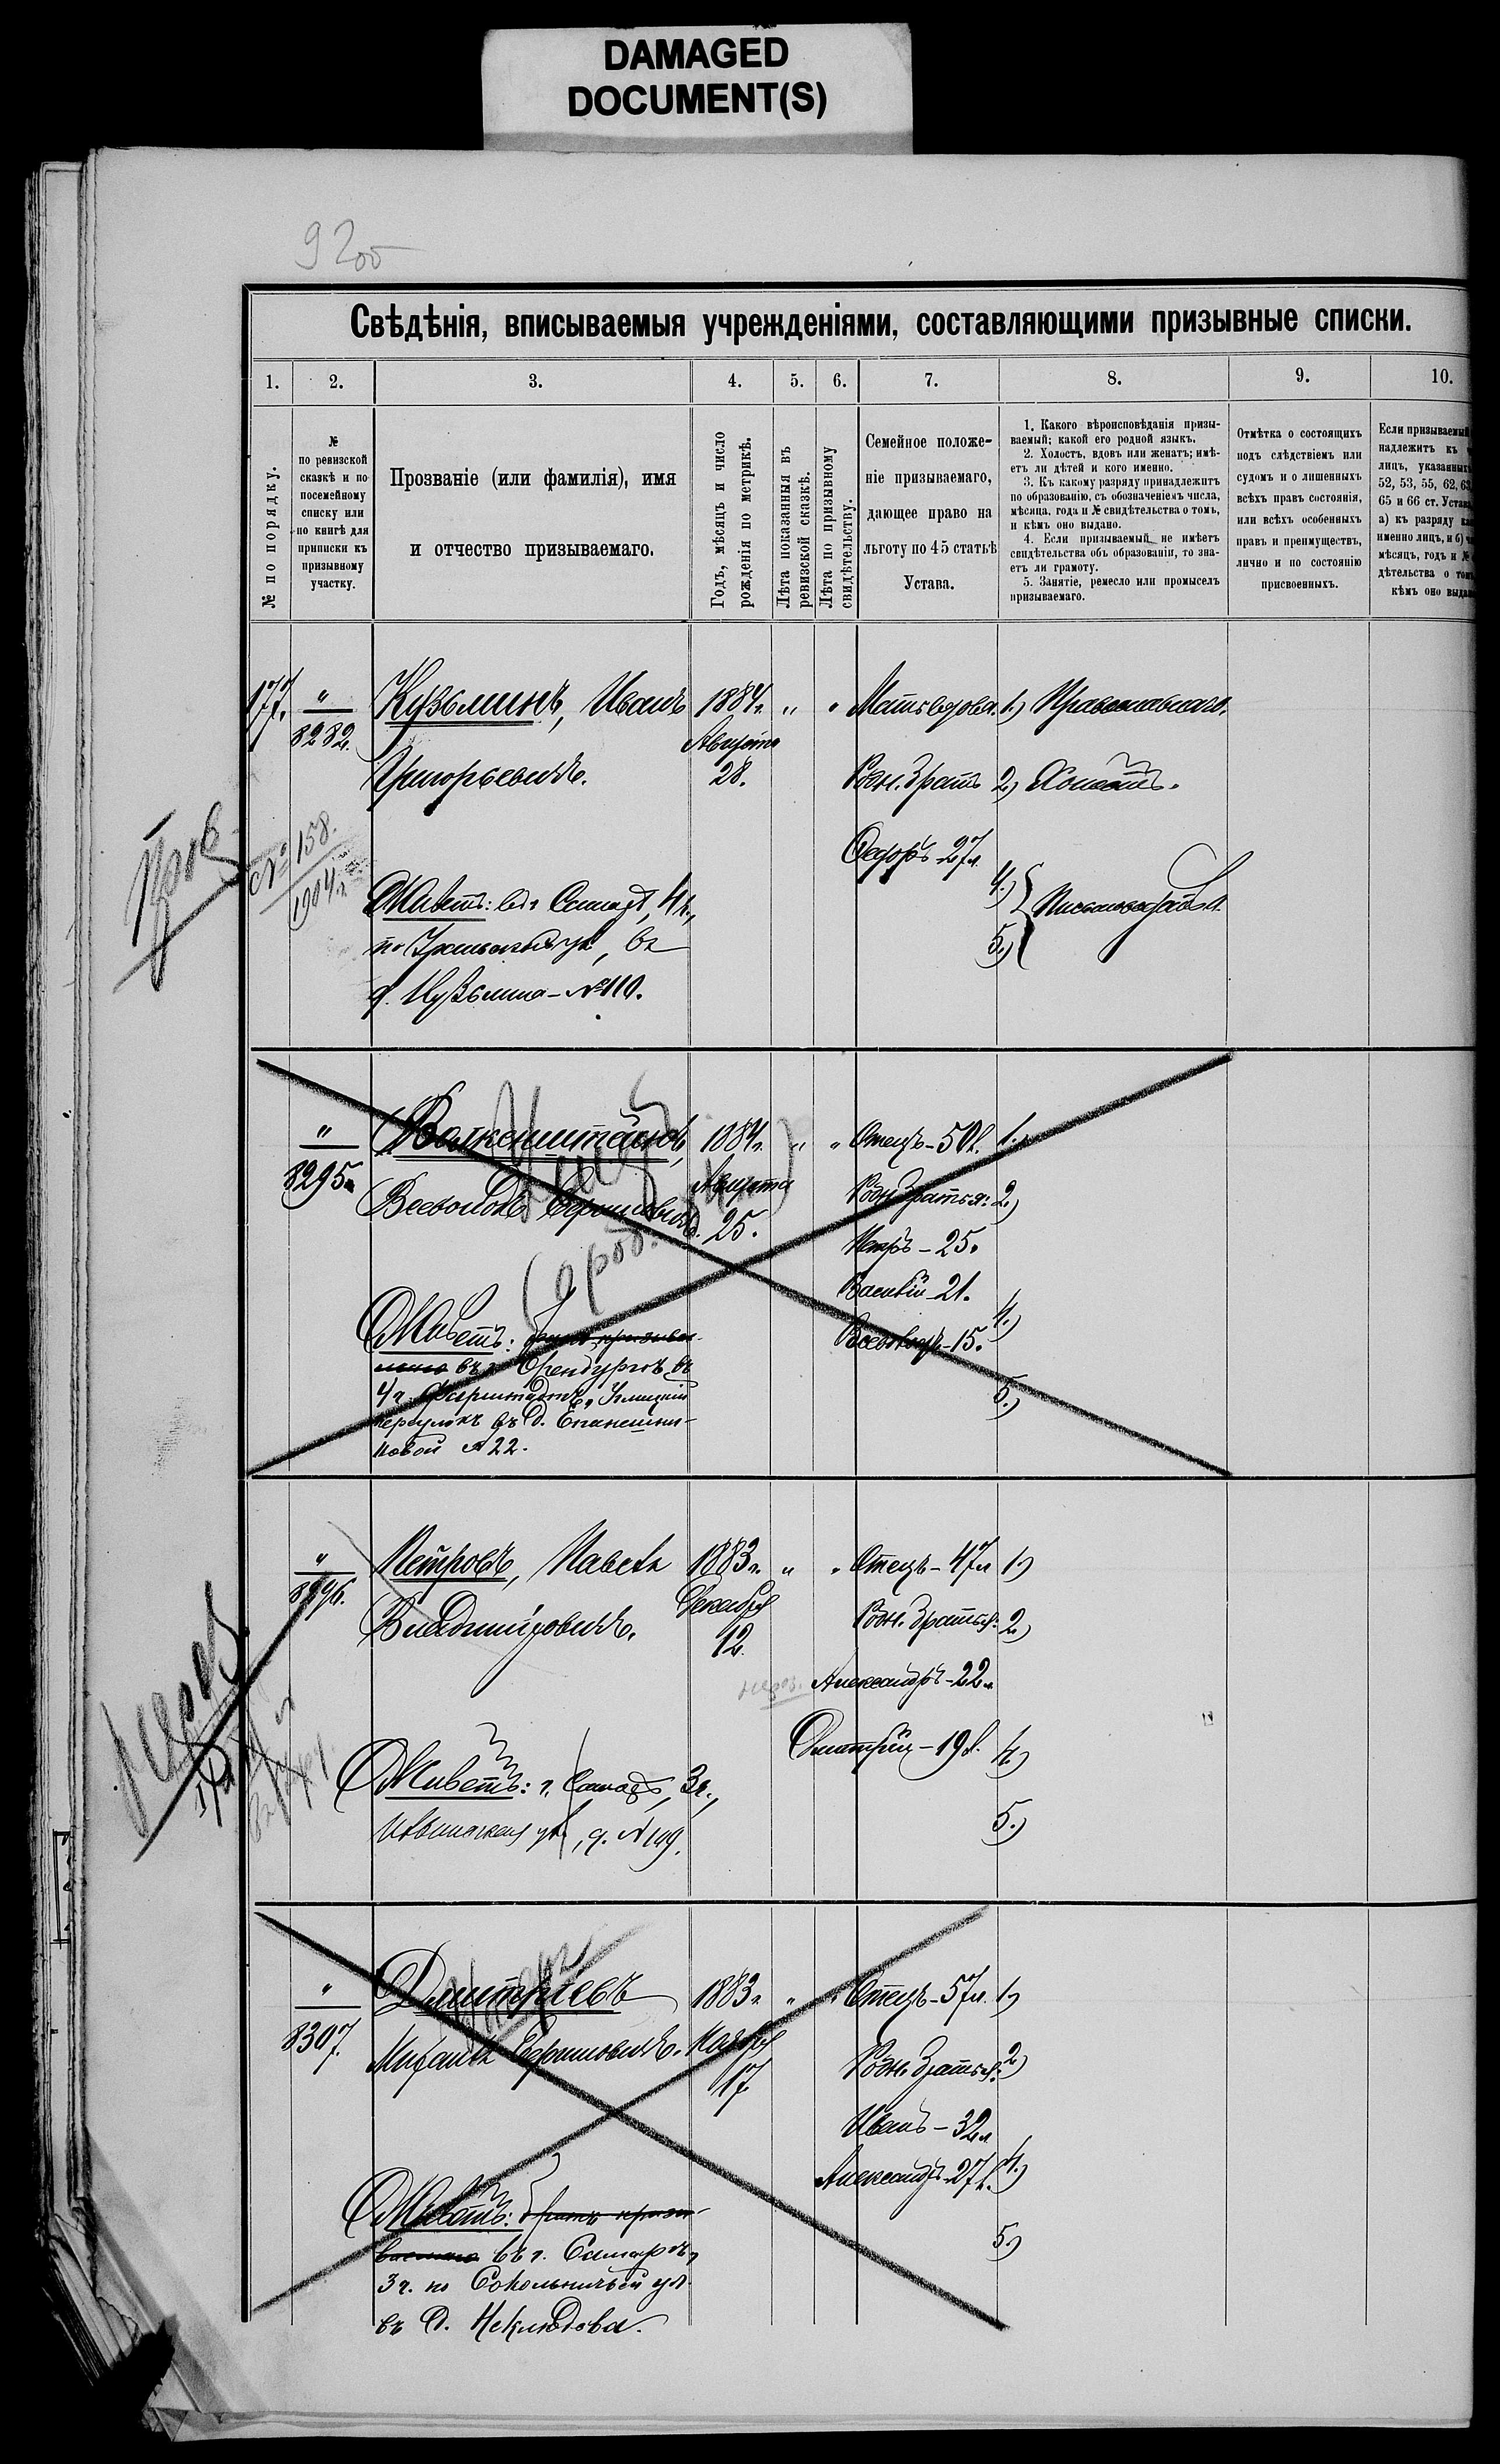 DAMAGED
DOCUMENT(S)
9200
Свѣдѣнія, вписываемыя учрежденіями, составляющими призывные списки.
1. 2. 3. 4. 5. 6. 7. 8. 9. 10.
№ по порядку.
№
по ревизской
сказкѣ и по
посемейному
списку или
по книгѣ для
приписки къ
призывному
участку.
Прозваніе (или фамилія), имя
и отчество призываемаго.
Годъ, мѣсяцъ и число
рожденія по метрикѣ.
Лѣта показанныя въ
ревизской сказкѣ.
Лѣта по призывному
свидѣтельству.
Семейное положе-
ніе призываемаго,
дающее право на
льготу по 45 статьѣ
Устава.
1. Какого вѣроисповѣданія призы-
ваемый; какой его родной языкъ.
2. Холостъ, вдовъ или женатъ; имѣ-
етъ ли дѣтей и кого именно.
3. Къ какому разряду принадлежитъ
по образованію, съ обозначеніемъ числа,
мѣсяца, года и № свидѣтельства о томъ,
и кѣмъ оно выдано.
4. Если призываемый не имѣетъ
свидѣтельства объ образованіи, то зна-
етъ ли грамоту.
5. Занятіе, ремесло или промыселъ
призываемаго.
Отмѣтка о состоящихъ
подъ слѣдствіемъ или
судомъ и о лишенныхъ
всѣхъ правъ состоянія,
или всѣхъ особенныхъ
правъ и преимуществъ,
лично и по состоянію
присвоенныхъ.
Если призываемый
надлежитъ къ
лицъ, указанныхъ
52, 53, 55, 62, 63,
65 и 66 ст. Устава
а) къ разряду
именно лицъ, и б)
мѣсяцъ, годъ и №
дѣтельства о томъ
кѣмъ оно выдано
177. " Кузьминъ, Иванъ 1884г. " " 1.) Православнаго.
8282. Августа
Григорьевичъ. 28. Родн. братъ 2.) Холостъ.
Федоръ 27л.
№ 158.
1904г. 4.)
Живетъ: въ г. Самарѣ, 4ч.,
по Уральской ул., въ 5.)
д. Кузьмина - №110.
" Валкенштейнъ, 1884г. " " Отецъ - 50л. 1.
8295. Августа
Всеволодъ 25. Родн. братья: 2.)
Петръ - 25.
Василій - 21.
Всеволодъ - 15. 4.)
Живетъ:
въ г. Оренбургѣ въ
4ч. 5.)
переулокъ въ д. Епанешни-
ковой № 22.
" Петровъ, Павелъ 1883г. " " Отецъ - 47л 1.)
8296. Декабря
Владиміровичъ. 12. Родн. братья: 2.)
Александръ - 22л.
Дмитрій - 19л. 4.)
Живетъ: г. Самара, 3ч.,
Ильинская ул., д. №109. 5.)
" Дмитріевъ 1883г. " " Отецъ - 57л. 1.)
8307. Ноября
Михаилъ Ефимовичъ. 17. Родн. братья: 2.)
Иванъ - 32л
Александръ - 27л. 4.)
Живетъ: братъ призы-
ваемаго въ г. Самарѣ, 5.)
3ч. по Сокольничьей ул.
въ д. Неклюдова.